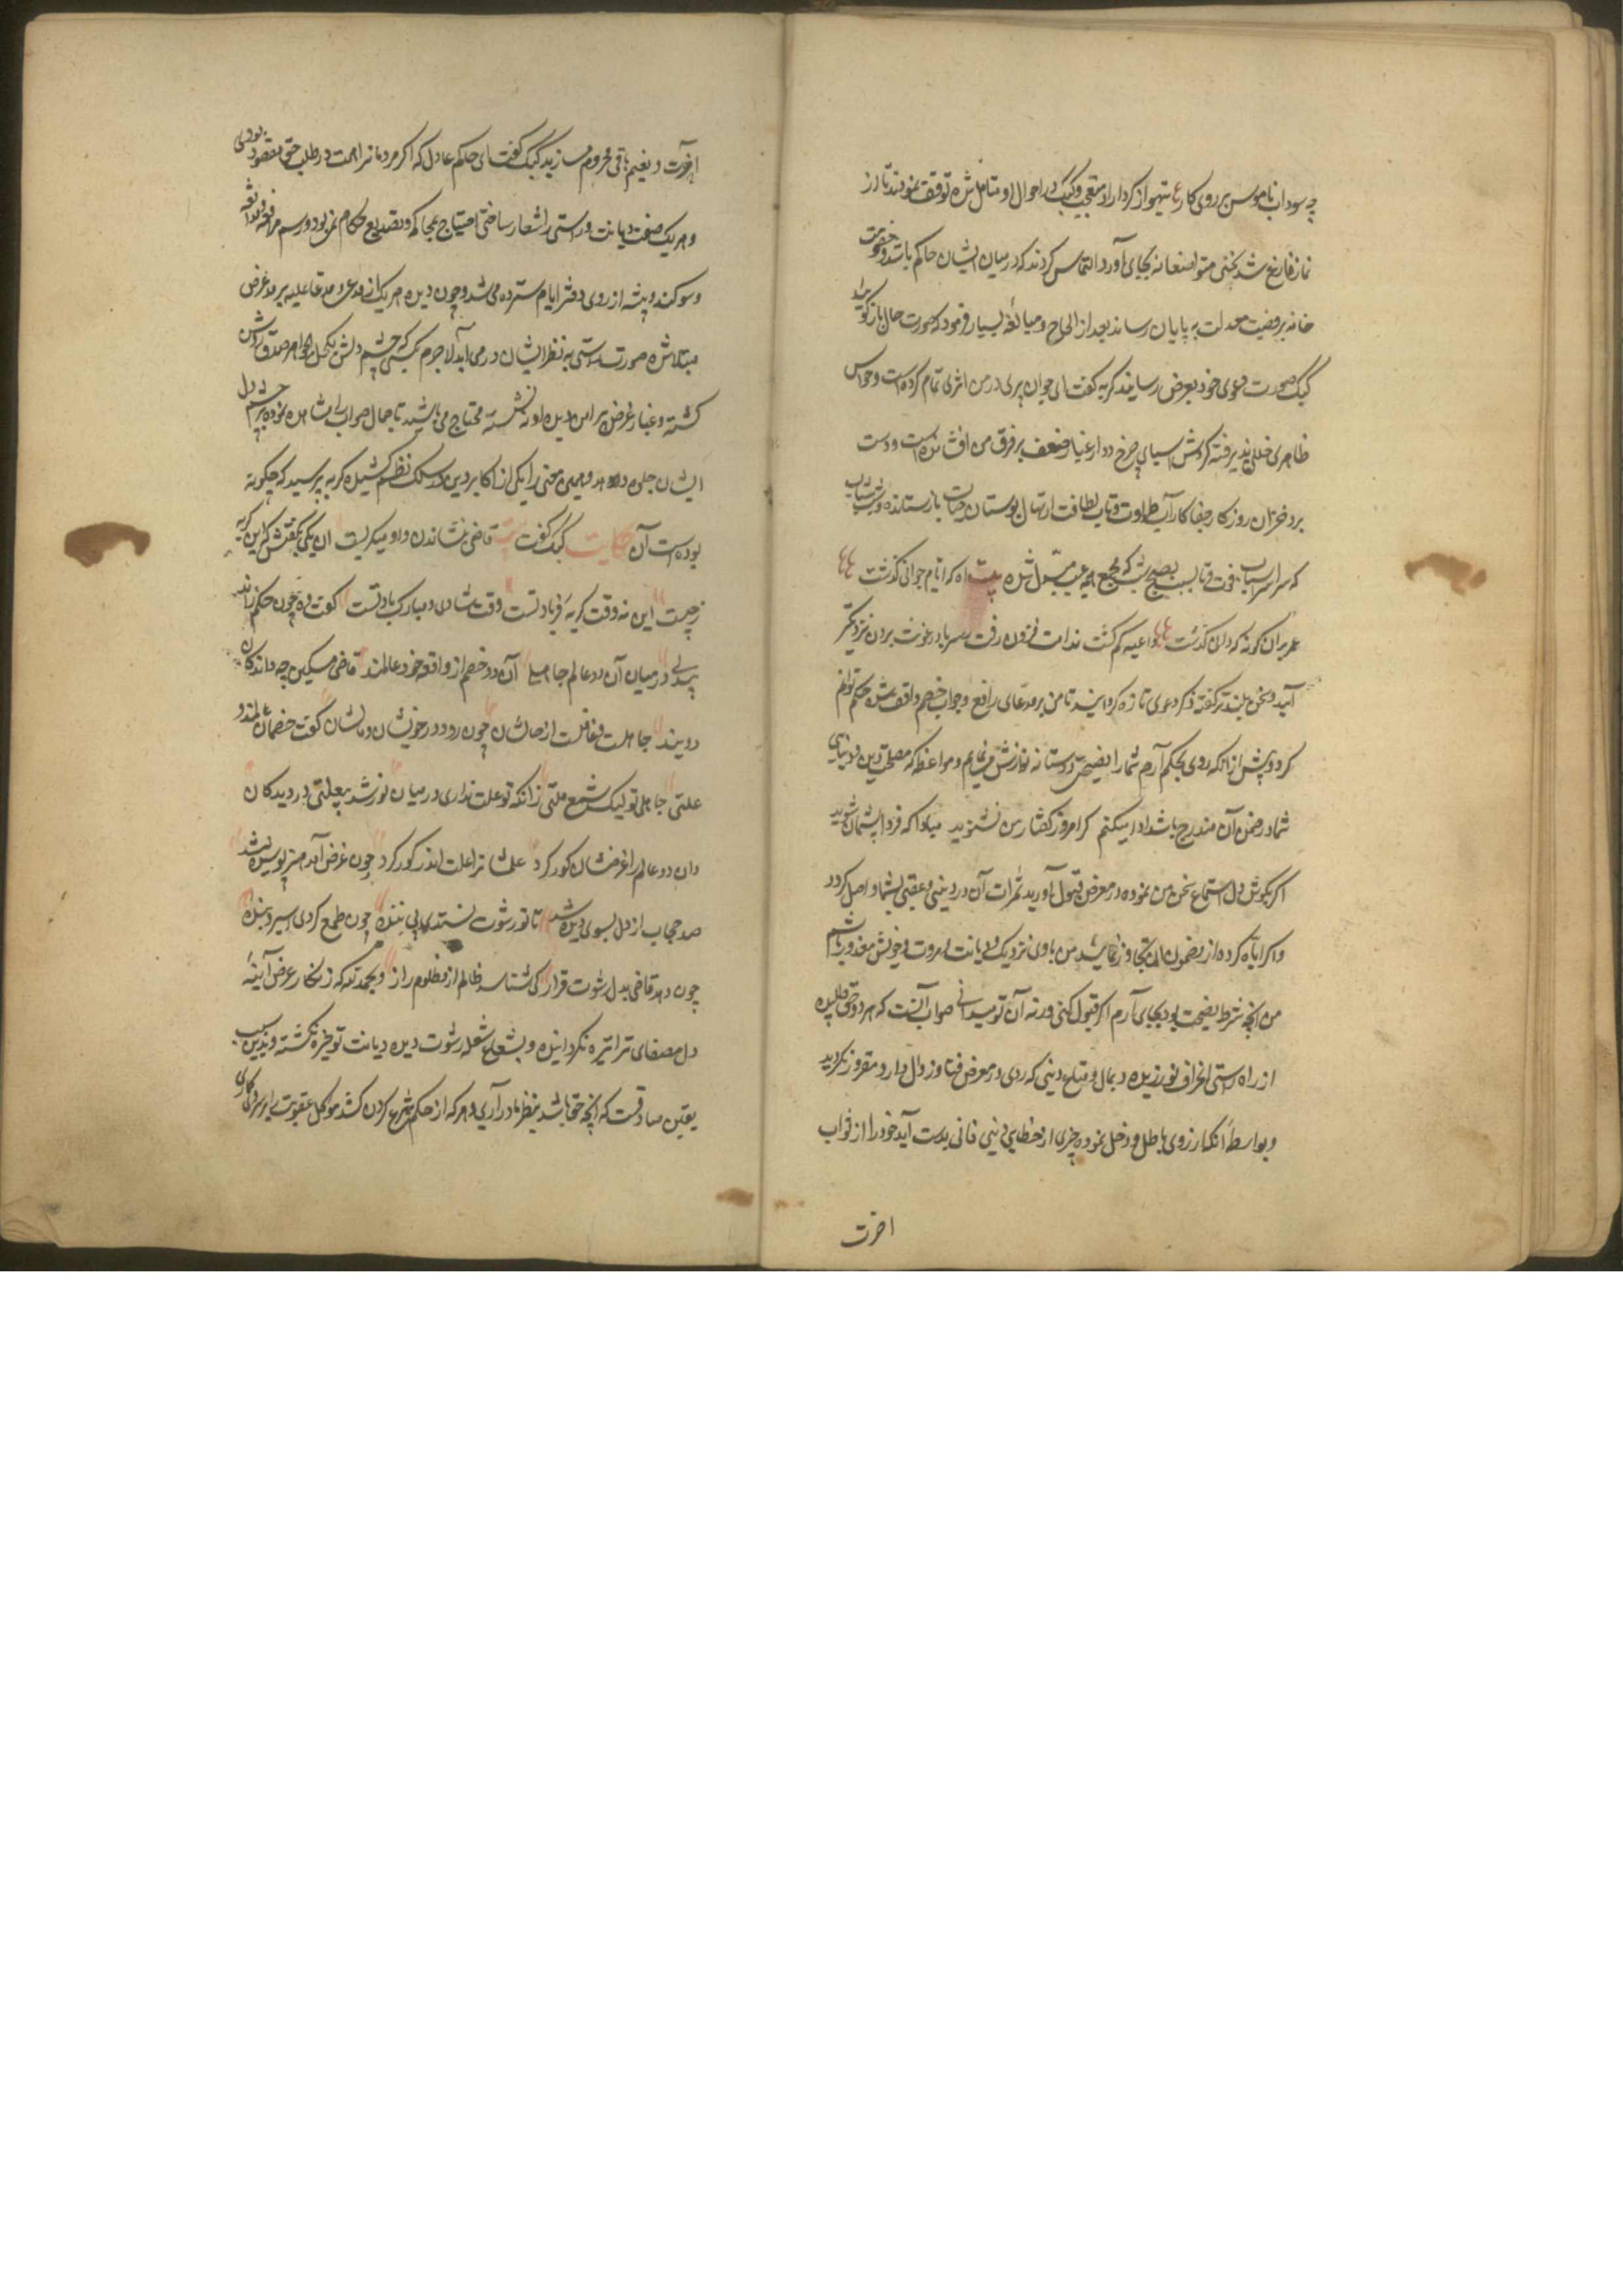 چه سود اب ناموس بر روی کار تیهو از کردار او متعجب و کبک در احوال او متامل شده توقف نمودند تا از
نماز فارغ شد تحیتی متواضعانه بجای آورد و التماس کردند که در میان ایشان حاکم باشد و خصومت
خانه بر قضیت معدلت به پایان رساند بعد از الحاح و مبالغه بسیار فرمود که صورت حال باز گویید
کبک صورت دعوی خود بعرض رسانید گربه گفت ای جوان پیری در من اثری تمام کرده است و حواس
ظاهری خللی پذیرفته گردش اسیای چرخ دوار غبار ضعف بر فرق من افشانده است و دست
برد خزان روزگار جفا کار آب طراوت و تاب لطافت از نهال بوستان حیات باز ستانده و شب شباب
که سر اسباب فوت و تاب بصبح شیب که مجمع همه عیب مبدل شده بیت اه که ایام جوانی گذشت
عمر بدان گونه که دانی گذشت داعیه کم گشت ندامت فزون رفت سر باد رعونت برون نزدیکتر
آیید و سخن بلندتر گفته ذکر دعوی تازه گردانید تا من بر مدعای رافع و جواب خصم واقف شده حکم توانم
کرد و پیش از آنکه روی بحکم آرم شما را نصیحتی دوستانه نوازش می نمایم و مواعظ که مصلحت دین و دنیای
شما در ضمن آن مندرج باشد ادا میکنم گر امروز گفتار من نشنوید مبادا که فردا پشیمان شوید
اگر بگوش دل استماع سخن من نموده در معرض قبول آورید ثمرات آن در دینی و عقبی بشما واصل گردد
و اگر اباه کرده از مضمون آن تجاوز نمایید من باری نزدیک دیانت و مروت خویش معذور باشم
من انچه شرط نصیحت بود بجای آرم اگر قبول کنی ورنه آن تو میدانی صواب آنست که هر دو حق طلبیده
از راه راستی انحراف نورزیده و بمال و متاع دینی که روی در معرض فنا و زوال دارد مغرور نگردید
و بواسطه انکه از روی باطل و دخل نموده چیزی از حطام دینی فانی بدست آید خود را از ثواب
اخرت
اخرت و نعیم باقی محروم مسازید کبک گفت ای حاکم عادل که اگر مردمانرا همت در طلب حق مقصود بودی
و هر یک صفت دیانت و راستی را شعار ساختی احتیاج بمحاکمه و تصدیع حکام نمی بود و رسم مرافعه و مدافعه
و سوگند و بینه از روی دفتر ایام سترده می شد و چون دیده هر یک از مدعی و مدعا علیه برمد غرض
مبتلا شده صورت راستی به نظر ایشان در نمی آید لاجرم بکسی که چشم دلش بکحل الجواهر صدق روشن
گشته و غبار غرض پیرامن دیده او ننشسته محتاج می باشند تا جمال صواب را مشاهده نموده بر چشم دل
ایشان جلوه دهد و همین معنی را یکی از اکابر دین در سلک نظم کشیده گربه پرسید که چگونه
بوده است آن حکایت کبک گفت بیت قاضی بنشاندن و او میگریست ان یکی گفتش که این گریه
ز چیست این نه وقت گریه و فریاد تست وقت شادی و مبارک باد تست گفت وه چون حکم راند
بیدلی در میان آن دو عالم جاهلی آن دو خصم از واقعه خود عالمند قاضی مسکین چه داند کان
دو بند جاهلست و غافلست از حالشان چون رود در خونشان و مالشان گفت خصمان عالمند و
علتی جاهلی تو لیک شمع ملتی زانکه تو علت نداری در میان نور شد بیعلتی در دیدگان
وان دو عالم را غرضشان کور کرد علمشانرا علت اندر گور کرد چون غرض آمد هنر پوشیده شد
صد حجاب از دل بسوی دیده شد تا تو رشوت نستدی بیننده چون طمع کردی اسیر و بنده
چون دهد قاضی بدل رشوت قرار کی شناسد ظالم از مظلوم زار و بحمد لله که زنگار غرض آیینه
دل مصفای ترا تیره نگردانیده و بشعاع شعله رشوت دیده دیانت تو خیره نگشته و بدین سبب
یقین صادقست که انچه حق باشد بنظر ما در آری و هر که از حکم شرع گردن کشد موکل عقوبت را بر وی گماری